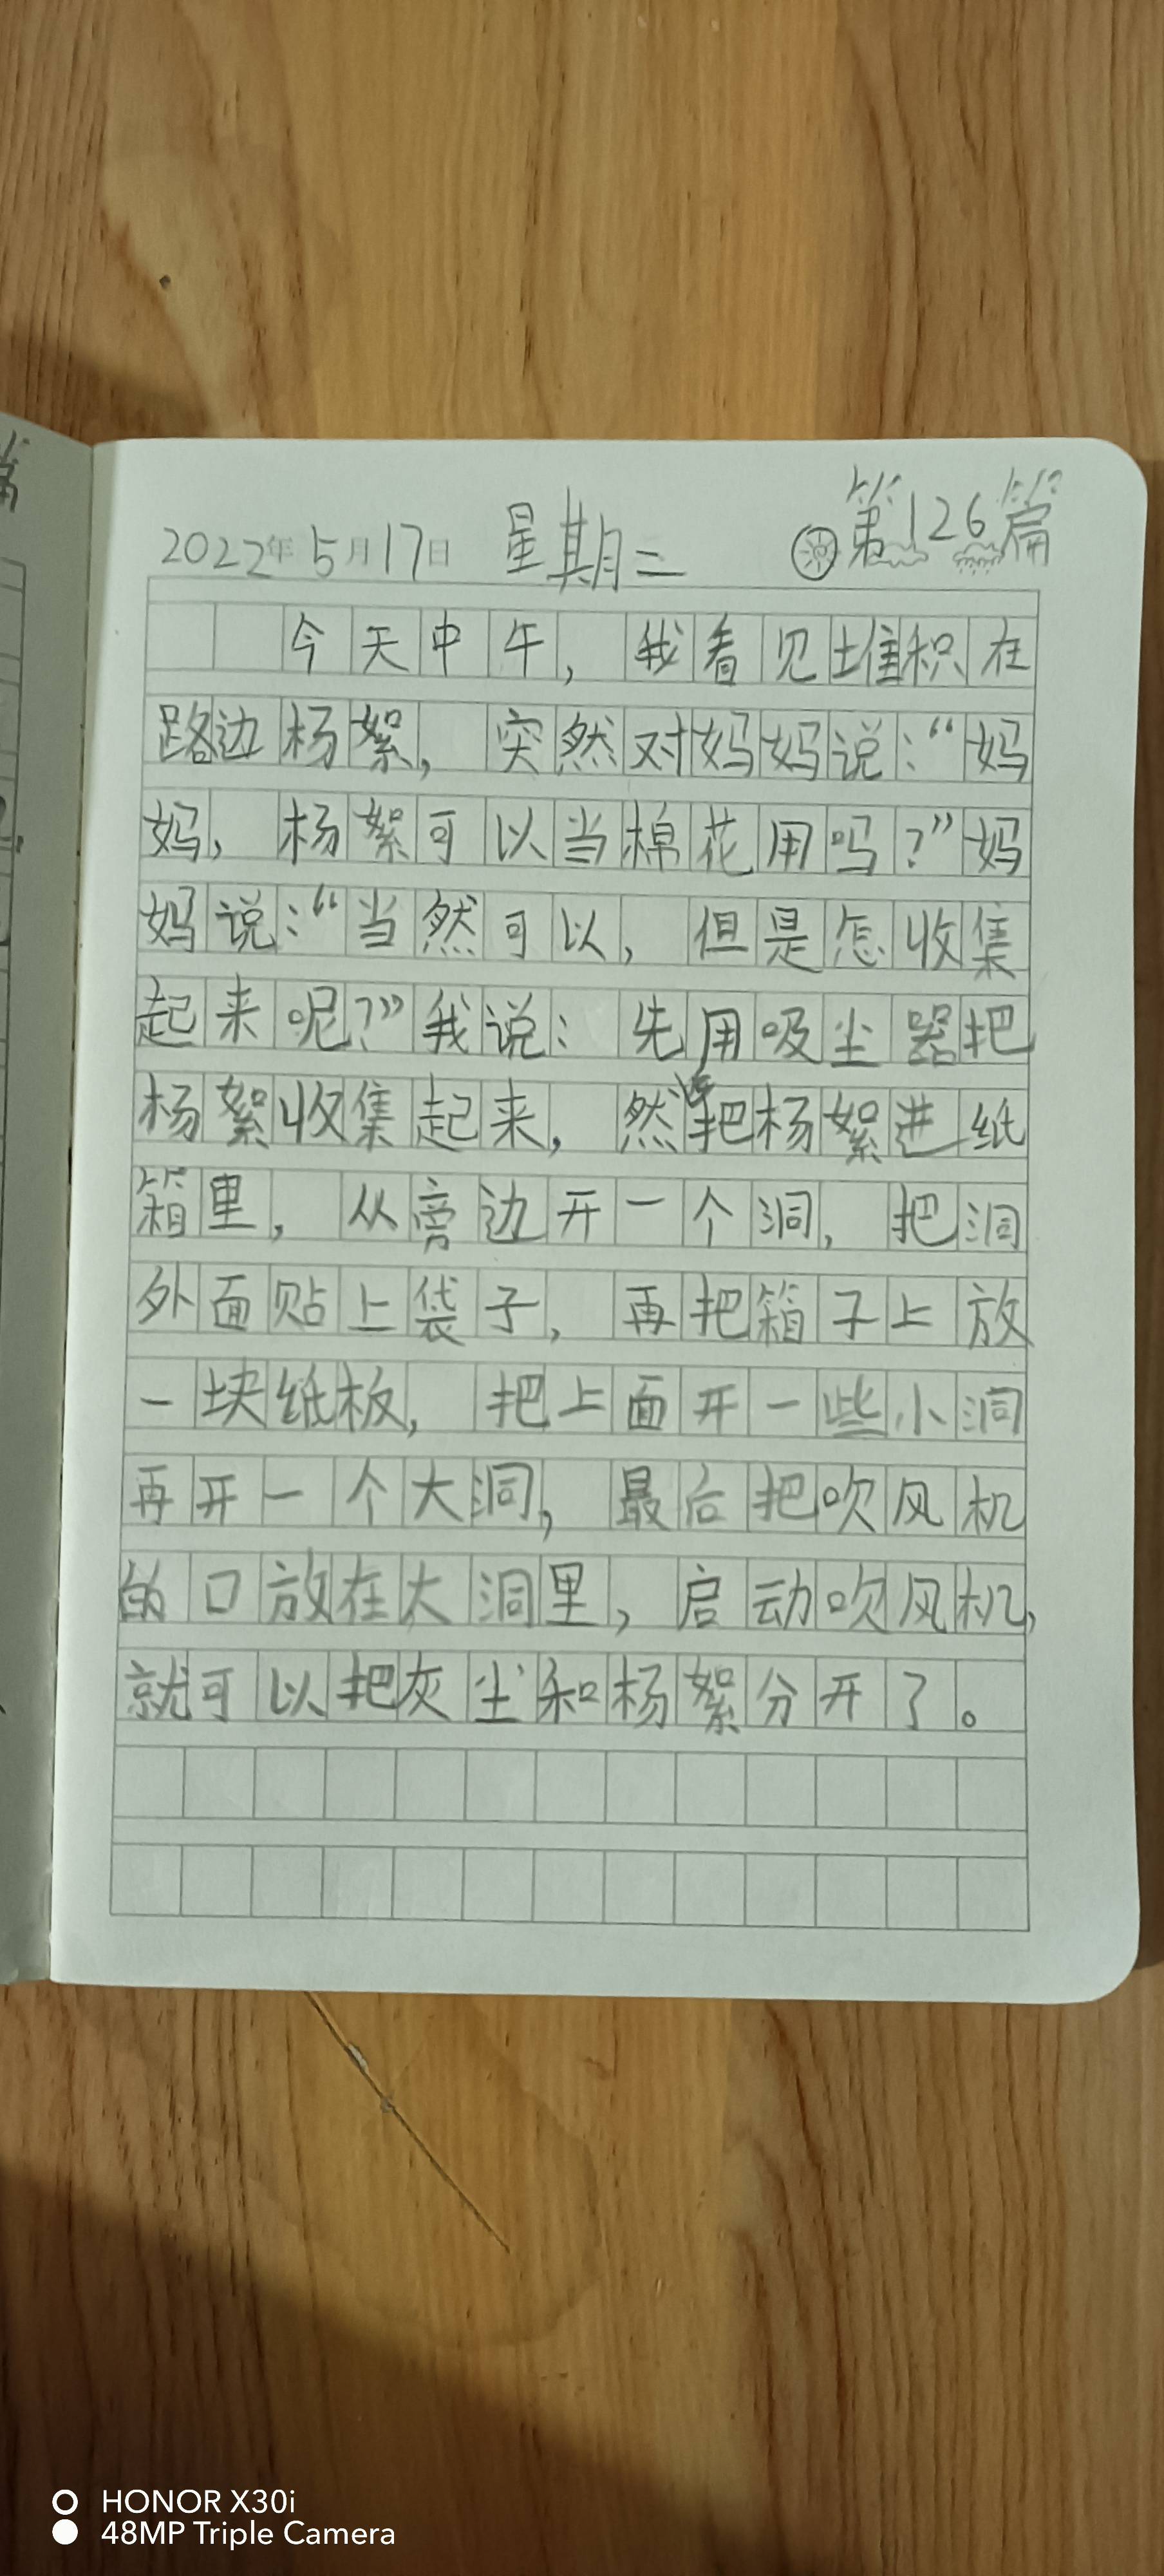 2022年5月17日 星期二 第126篇
今天中午，我看见堆积在
路边杨絮，突然对妈妈说：“妈
妈，杨絮可以当棉花用吗？”妈
妈说：“当然可以，但是怎收集
起来呢？”我说：先用吸尘器把
杨絮收集起来，然后把杨絮进纸
箱里，从旁边开一个洞，把洞
外面贴上袋子，再把箱子上放
一块纸板，把上面开一些小洞
再开一个大洞，最后把吹风机
的口放在大洞里，启动吹风机，
就可以把灰尘和杨絮分开了。
HONOR X30i
48MP Triple Camera